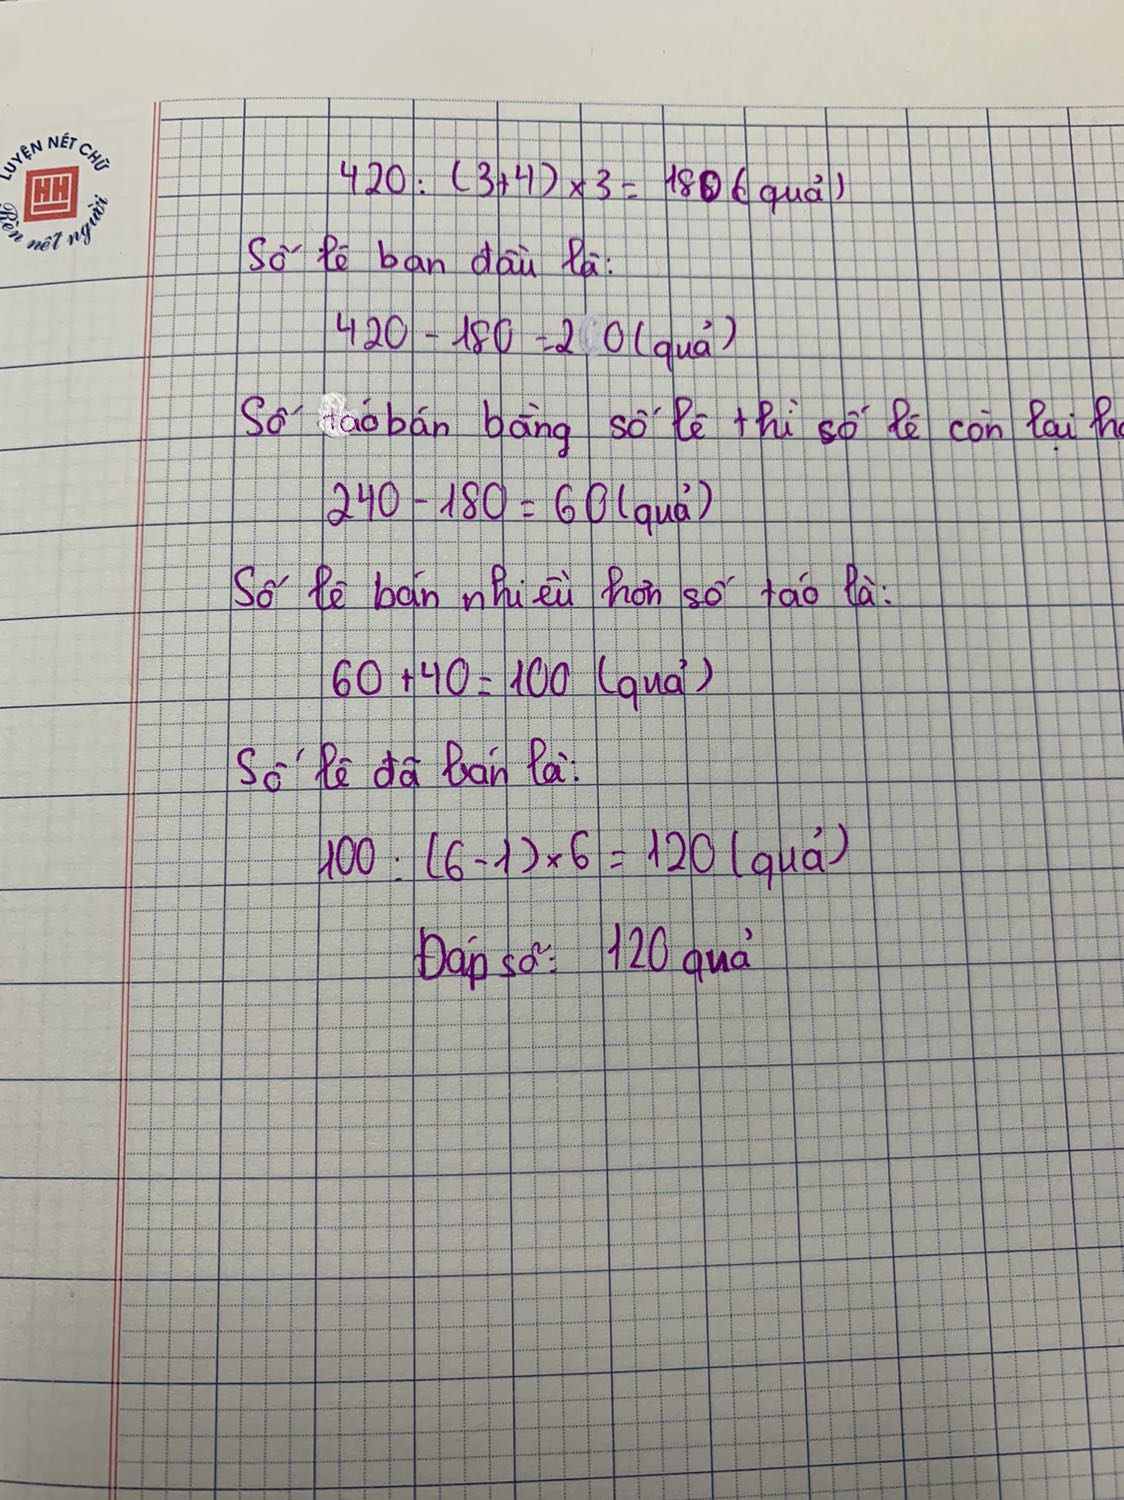 LUYỆN NÉT CHỮ
HH
Rèn nết người
420 : (3+4) x 3 = 180 (quả)
Số lê ban đầu là:
420 - 180 = 2 0 (quả)
Số táo bán bằng số lê thì số lê còn lại
240 - 180 = 60 (quả)
Số lê bán nhiều hơn số táo là:
60 + 40 = 100 (quả)
Số lê đã bán là:
100 : (6 - 1) x 6 = 120 (quả)
Đáp số: 120 quả